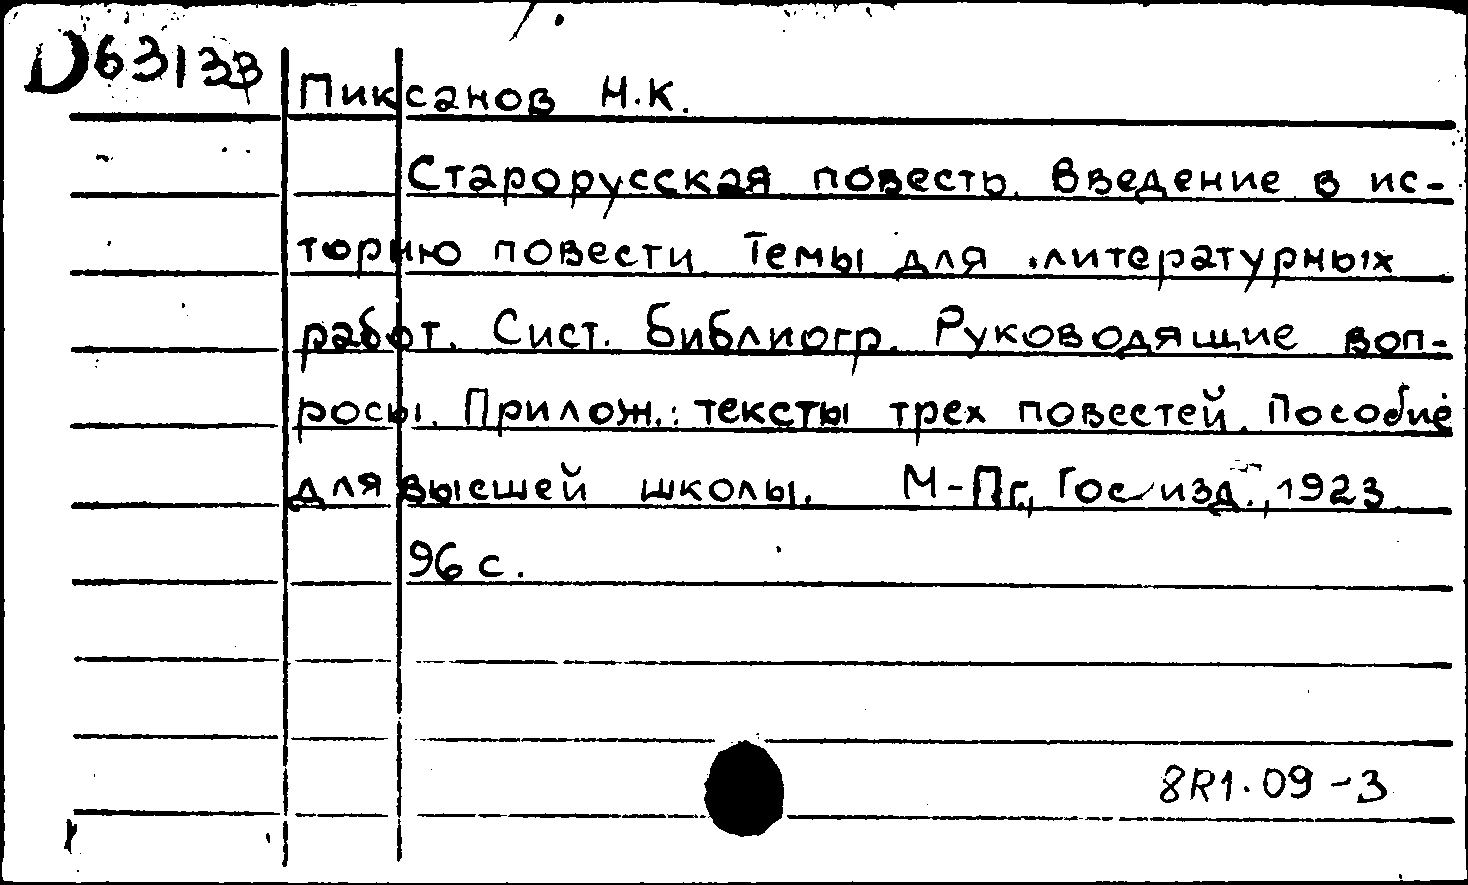 D63133
Пиксанов Н.К.
Старорусская повесть. Введение в ис-
торию повести. Темы для литературных
работ. Сист. библиогр. Руководящие воп-
росы. Прилож.: тексты трех повестей. Пособие
для высшей школы. М-Пг., Госизд., 1923
96 с.
8R1.09-3